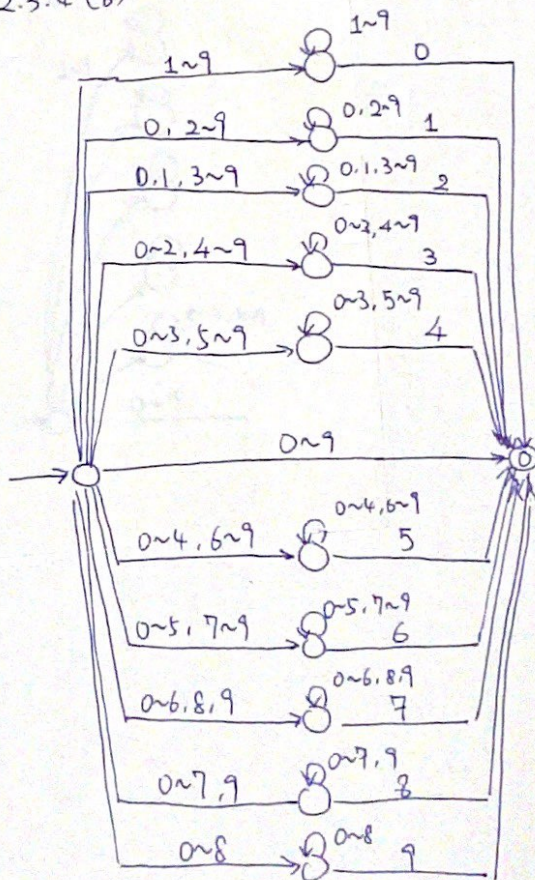 2.3.4 (b)
1~9
1~9 0
0, 2~9
0, 2~9 1
0,1,3~9
0,1,3~9 2
0~3,4~9
0~2,4~9 3
0~3,5~9
0~3,5~9 4
0~9
0~4,6~9
0~4,6~9 5
0~5,7~9
0~5,7~9 6
0~6,8,9
0~6,8,9 7
0~7,9
0~7,9 8
0~8
0~8 9